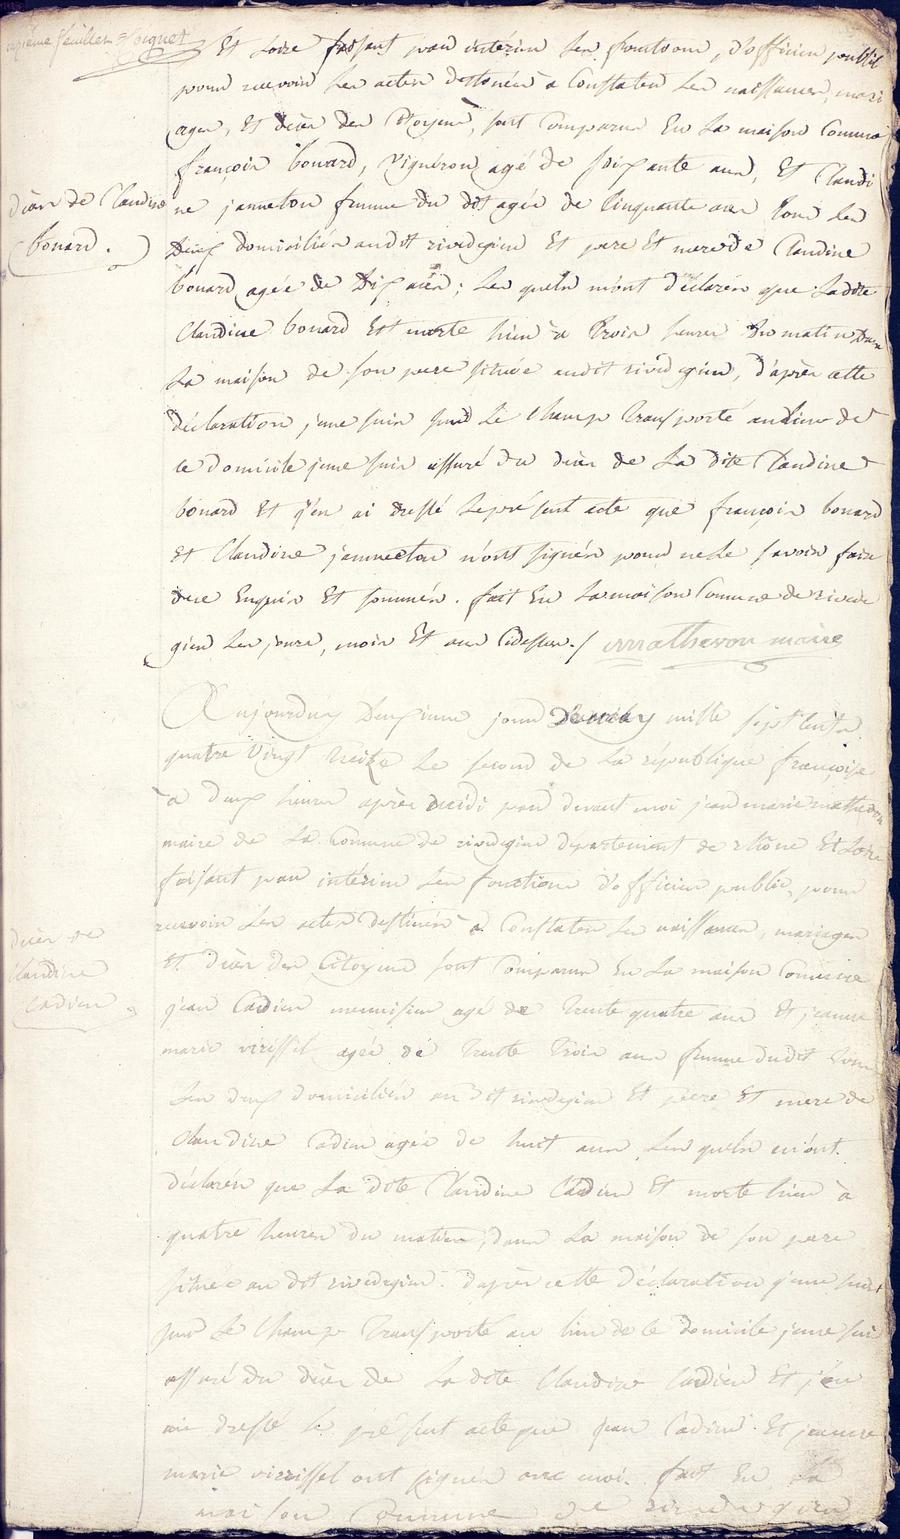 feuillet
Et Loire faisant par interim les fonctions d'officier public
pour recevoir les actes destinés a constater les naissances, mari
ages, et décès des citoyens, sont comparus en la maison commune
françois bonard, vigneron agé de soixante ans, et Claudi
décès de Claudine
ne jameton femme du dit agée de cinquante ans tous les
bonard.
deux domiciliés audit rivedegier et pere et mere de Claudine
bonard agée de dix ans; les quels m'ont déclarés que ladite
Claudine bonard est morte hier à trois heures du matin dans
la maison de son pere située audit rivedegier, d'après cette
déclaration je me suis sur le champ transporté au lieu de
ce domicile je me suis assuré du décès de la dite Claudine
bonard et j'en ai dressé le présent acte que françois bonard
et Claudine jameton n'ont signés pour ne le savoir faire
de ce enquis et sommés. fait en la maison commune de rivede
gier les jours, mois et an cidessus./ mathevon maire
Aujourduy deuxieme jour mille sept cents
quatre vingt treize le second de la république françoise
à deux heures après midi par devant moi jean marie mathevon
maire de la commune de rivedegier département de rhône et Loire
faisant par interim les fonctions d'officier public, pour
recevoir les actes destinés à constater les naissances, mariages
décès de
et décès des citoyens sont comparus en la maison commune
Claudine
Cadier
jean Cadier menuisier agé de trente quatre ans et jeanne
marie virissel agée de trente trois ans femme dudit tous
les deux domiciliés au dit rivedegier et pere et mere de
Claudine Cadier agée de huit ans les quels m'ont
déclarés que la dite Claudine Cadier est morte hier à
quatre heures du matin, dans la maison de son pere
située au dit rivedegier. d'après cette déclaration je me suis
sur le champ transporté au lieu de ce domicile je me suis
assuré du décès de la dite Claudine Cadier et j'en
ai dressé le présent acte que jean Cadier et jeanne
marie virissel ont signés avec moi. fait en la
maison commune de rivedegier